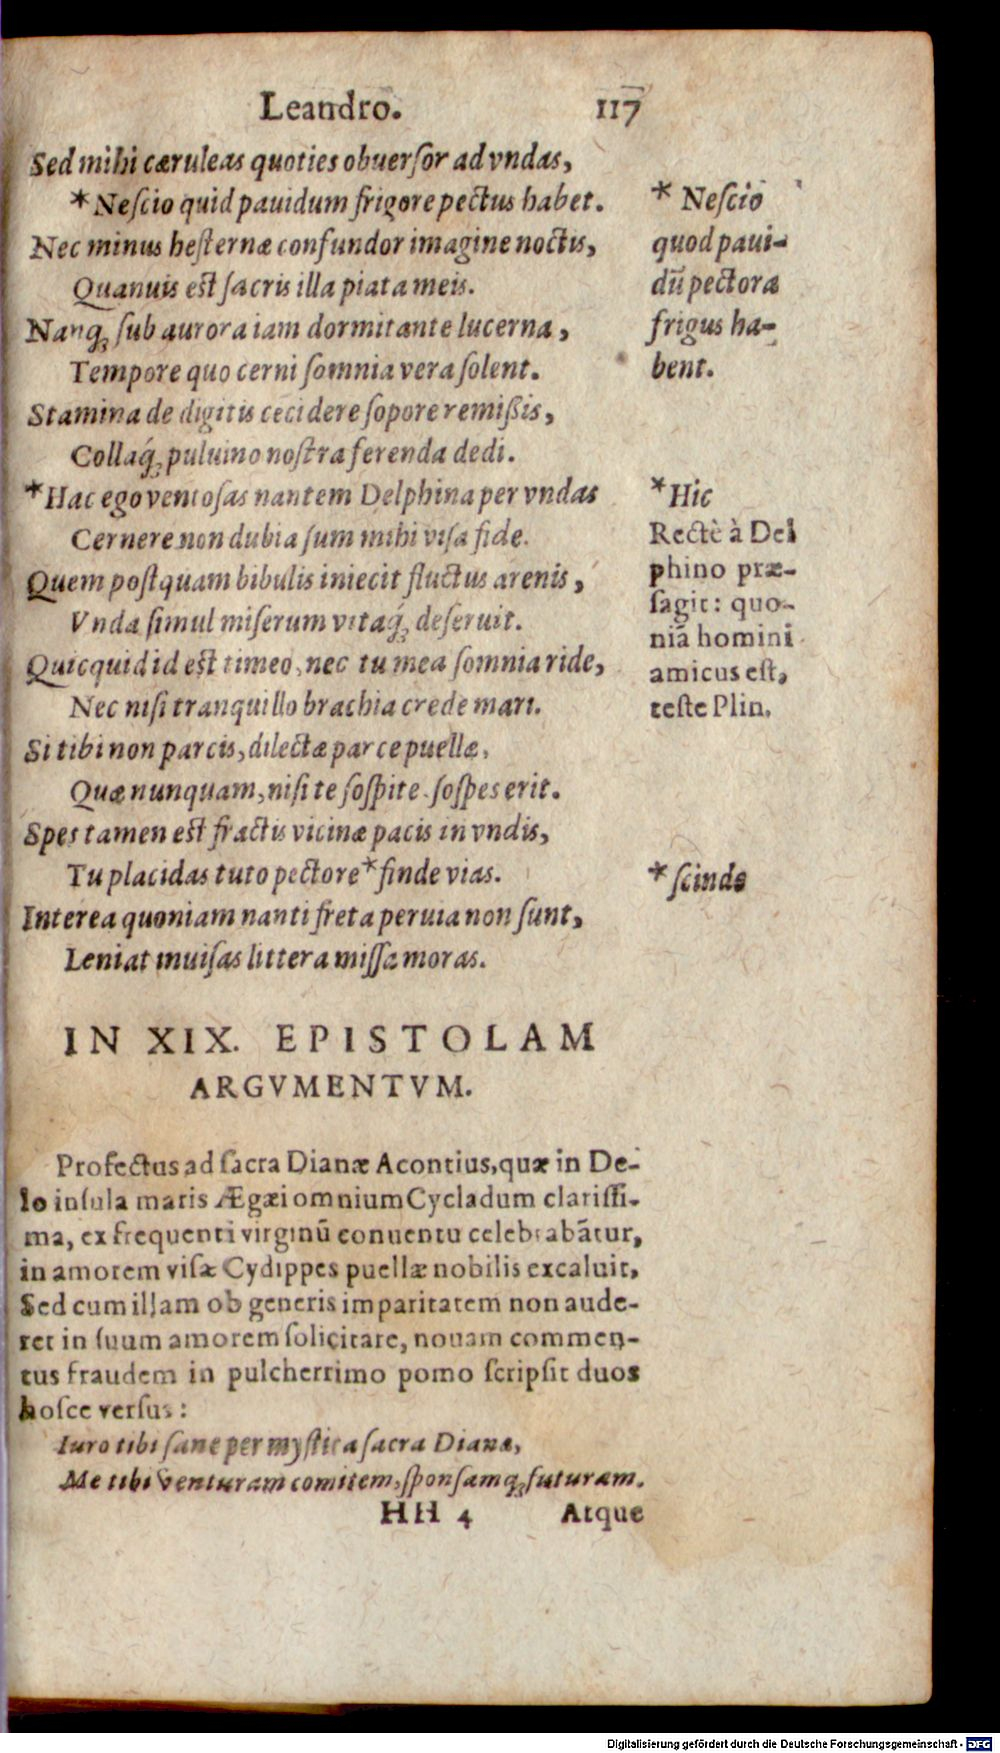 Leandro. 117
Sed mihi cæruleas quoties obuerſor ad vndas,
*Neſcio quid pauidum frigore pectus habet.
Nec minus heſternæ confundor imagine noctis,
Quanuis eſt ſacris illa piata meis.
Nanq́ ſub aurora iam dormitante lucerna,
Tempore quo cerni ſomnia vera ſolent.
Stamina de digitis cecidere ſopore remißis,
Collaq́ꝫ puluino noſtra ferenda dedi.
*Hac ego ventoſas nantem Delphina per vndas
Cernere non dubia ſum mihi viſa fide.
Quem poſtquam bibulis iniecit fluctus arenis,
Vnda ſimul miſerum vitaq́ꝫ deſeruit.
Quicquid id eſt timeo, nec tu mea ſomnia ride,
Nec niſi tranquillo brachia crede mari.
Si tibi non parcis, dilectæ parce puellæ,
Quæ nunquam, niſi te ſoſpite ſoſpes erit.
Spes tamen eſt fractis vicinæ pacis in vndis,
Tu placidas tuto pectore *finde vias.
Interea quoniam nanti freta peruia non ſunt,
Leniat inuiſas littera miſſa moras.
* Neſcio
quod paui-
dū pectora
frigus ha-
bent.
*Hic
Rectè à Del
phino præ-
ſagit: quo-
niā homini
amicus eſt,
teſte Plin.
* ſcinde
IN XIX. EPISTOLAM
ARGVMENTVM.
Profectus ad ſacra Dianæ Acontius, quæ in De-
lo inſula maris Ægæi omnium Cycladum clariſſi-
ma, ex frequenti virginū conuentu celebrabātur,
in amorem viſæ Cydippes puellæ nobilis excaluit,
Sed cum illam ob generis imparitatem non aude-
ret in ſuum amorem ſolicitare, nouam commen-
tus fraudem in pulcherrimo pomo ſcripſit duos
hoſce verſus:
Iuro tibi ſane per myſtica ſacra Dianæ,
Me tibi venturam comitem, ſponſamqꝫ futuram.
HH 4 Atque
Digitalisierung gefördert durch die Deutsche Forschungsgemeinschaft - DFG